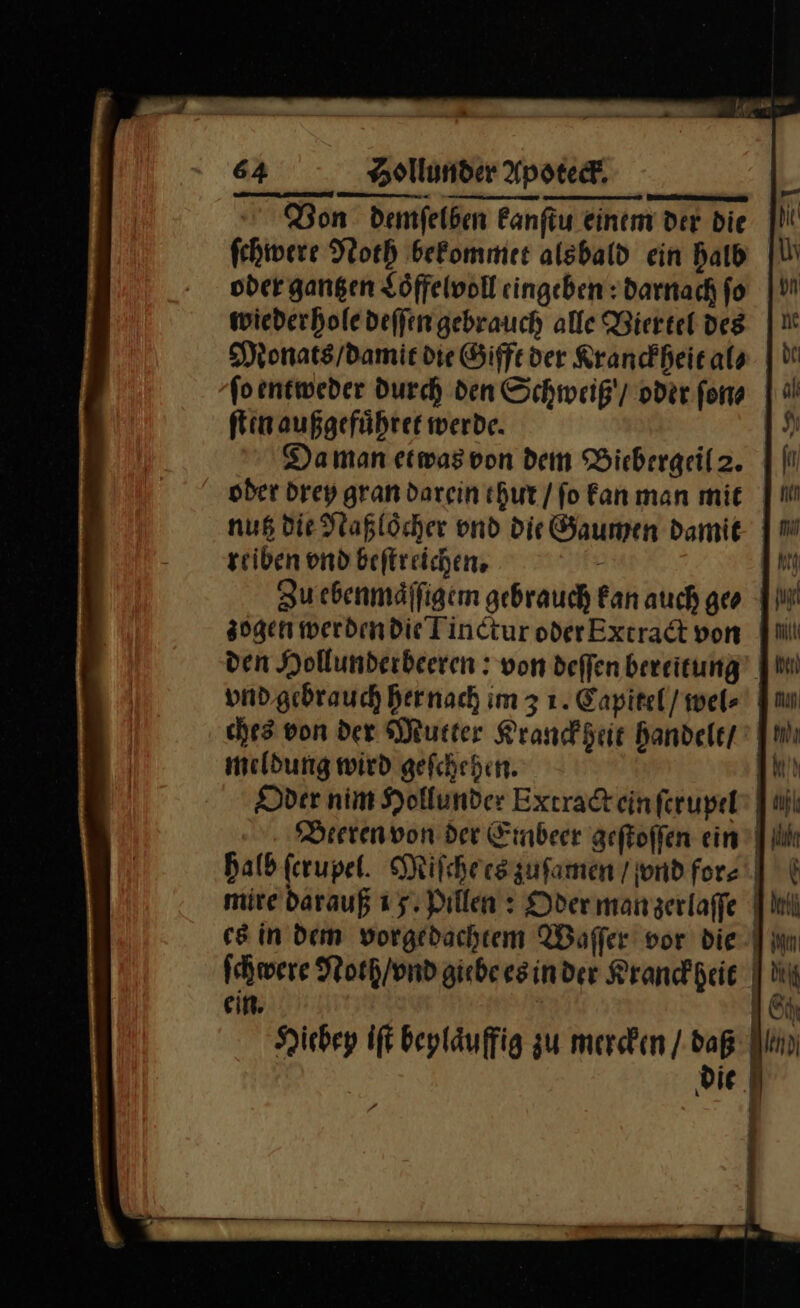 64 Hollunder Apoteck.
Von demſelben kanſtu einem der die
ſchwere Noth bekommet alsbald ein halb
oder gantzen Loͤffelvoll eingeben : darnach ſo
wiederhole deſſen gebrauch alle Viertel des
Monats/damit die Gifft der Kranckheit al⸗
ſo entweder durch den Schweiß / oder ſon⸗
ſten außgefuͤhret werde.
Da man etwas von dem Biebergeil 2.
oder drey gran darein thut / ſo kan man mit
nutz die Naßloͤcher vnd die Gaumen damit
reiben vnd beſtreichen.
Zu ebenmaͤſſigem gebrauch kan auch ge⸗
zogen werden die Tinctur oder Extract von
den Hollunderbeeren : von deſſen bereitung
vnd gebrauch hernach im 31. Capitel / wel⸗
ches von der Mutter Kranckheit handelt/
meldung wird geſchehen.
Oder nim Hollunder Extract ein ſcrupel
Beeren von der Einbeer geſtoſſen ein
halb ſcrupel. Miſche es zuſamen / vnd for⸗
mire darauß 15. Pillen : Oder man zerlaſſe
es in dem vorgedachtem Waſſer vor die
ſchwere Noth/vnd giebe es in der Kranckheit
ein.
Hiebey iſt beylaͤuffig zu mercken / daß
die